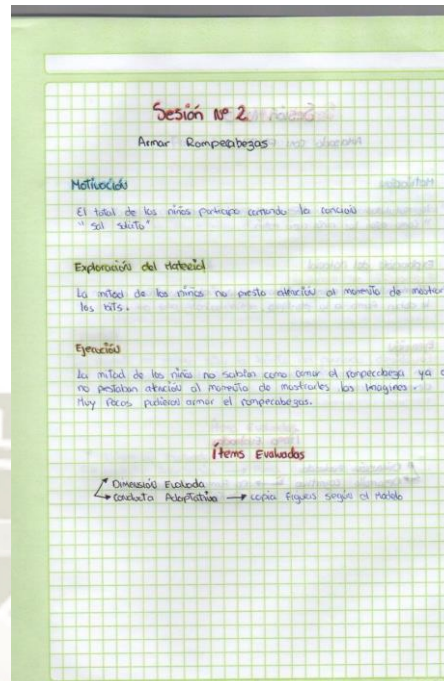 Sesión Nº 2
Armar Rompecabezas
Motivación
El total de los niños participo cantando la canción
" Sol solcito"
Exploración del Material
La mitad de los niños no presto atención al momento de mostrar
los bits.
Ejecución
La mitad de los niños no sabían como armar el rompecabeza ya q
no prestaban atención al momento de mostrarles las imagines.
Muy Pocos pudieron armar el rompecabezas.
Ítems Evaluados
Dimensión Evaluada
Conducta Adaptativa → copia Figuras según el Modelo